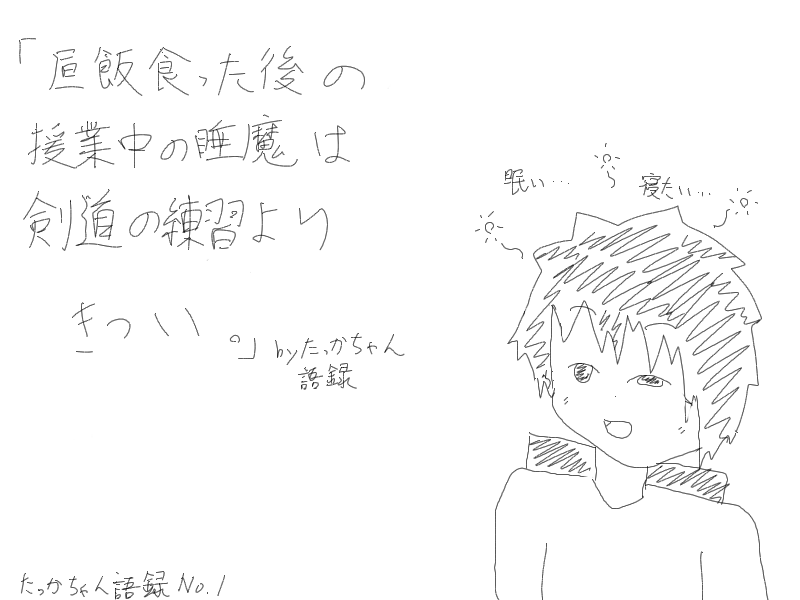 「昼飯食った後の
授業中の睡魔は
剣道の練習より
きつい。」byたっかちゃん
語録
眠い…
寝たい…
たっかちゃん語録No.1